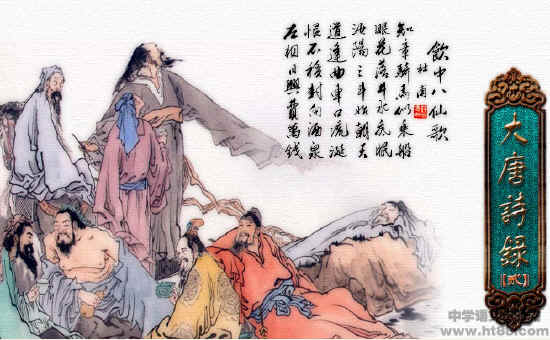 飲中八仙歌
杜甫
知章騎馬似乘船
眼花落井水底眠
汝陽三斗始朝天
道逢曲車口流涎
恨不移封向酒泉
左相日興費萬錢
大唐詩錄
[貳]
中学语
www.ht88.com